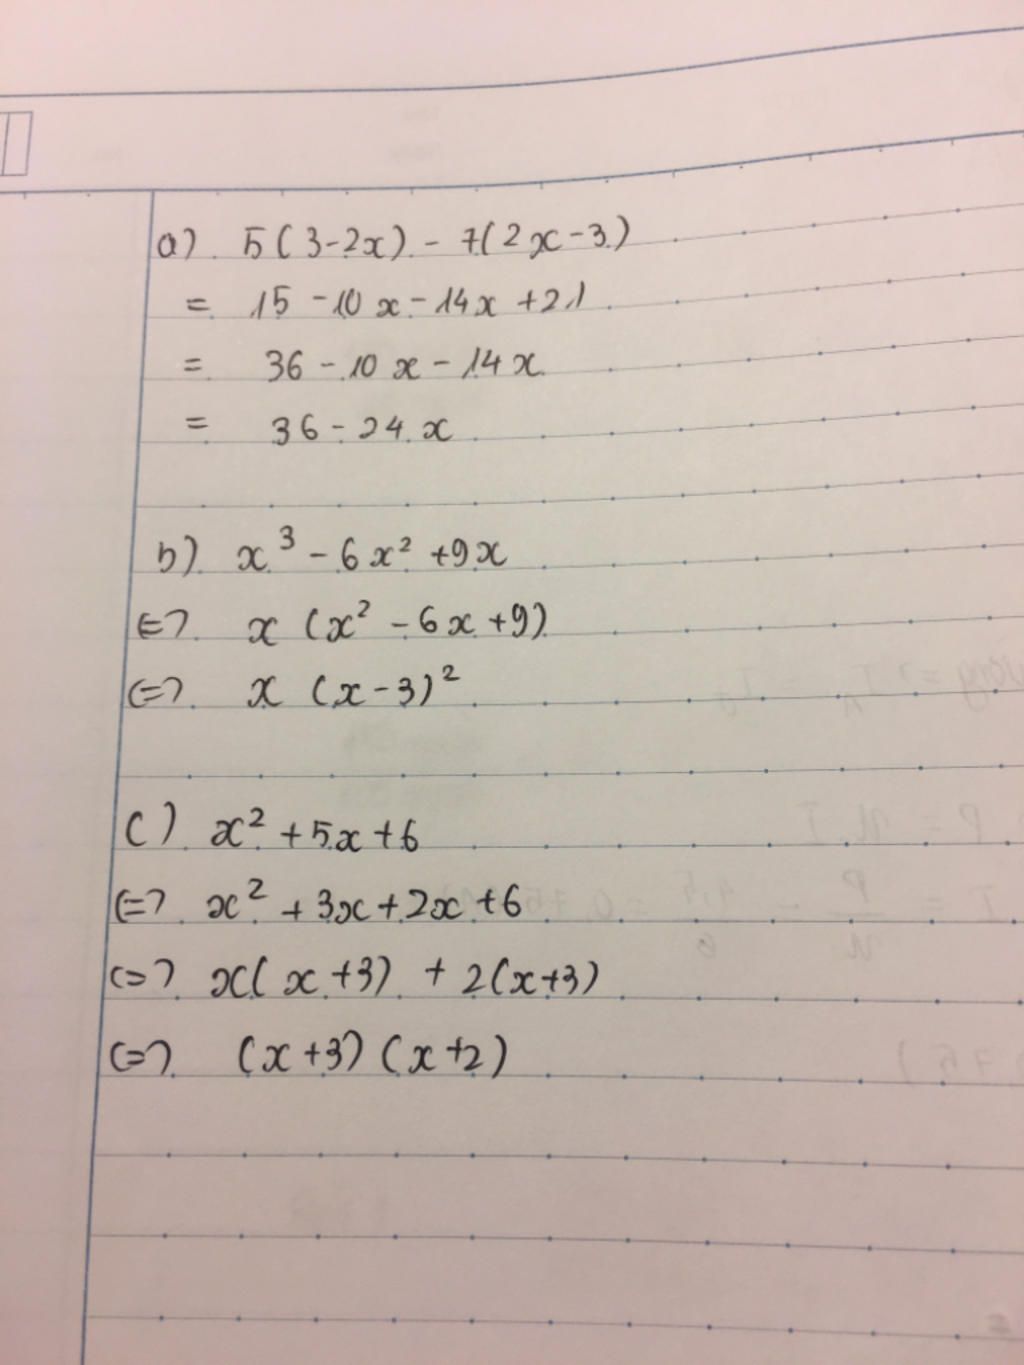 a) 5(3-2x) - 7(2x-3)
= 15 - 10x - 14x + 21
= 36 - 10x - 14x
= 36 - 24x
b) x³ - 6x² + 9x
<=> x (x² - 6x + 9)
<=> x (x-3)²
c) x² + 5x + 6
<=> x² + 3x + 2x + 6
<=> x(x+3) + 2(x+3)
<=> (x+3)(x+2)